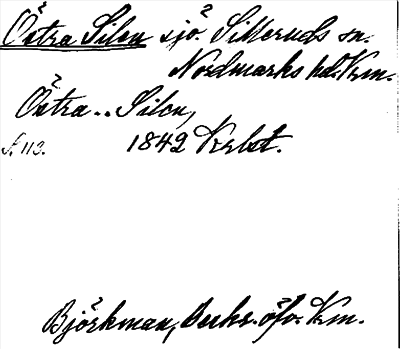 Östra Silen sjö. Silleruds sn.
Nordmarks hd. Vrm.
Östra .. Silen,
S. 113. 1842 Krbst.
Björkman, Beskr. öfv. Vrm.